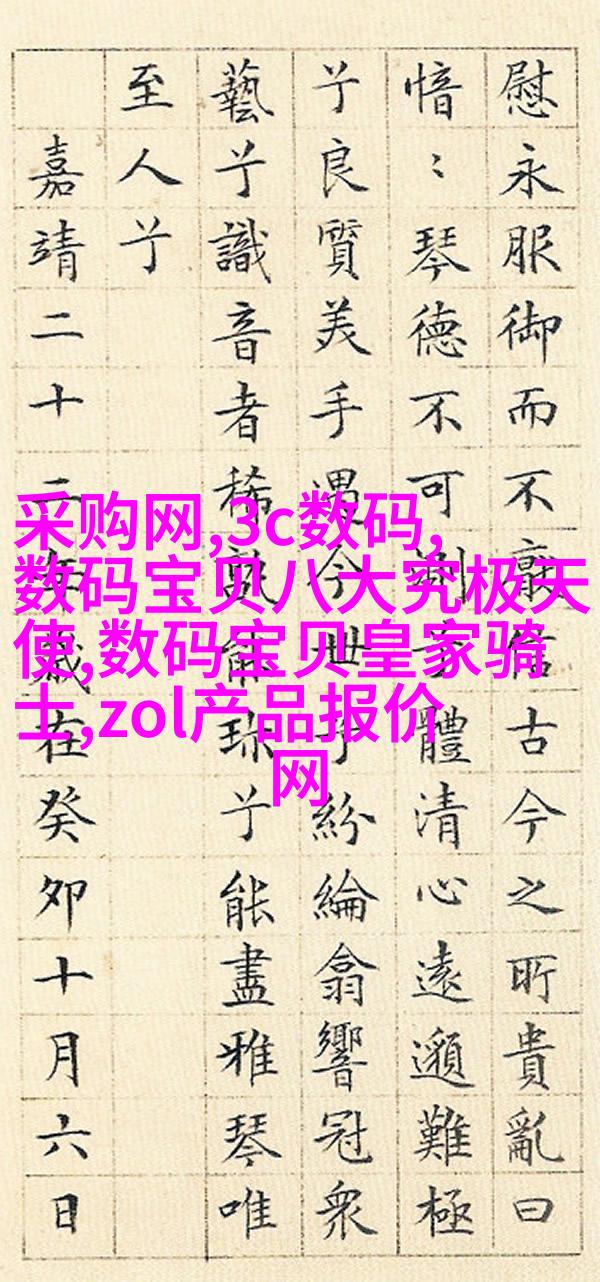 慰永服御而不厭信古今之所貴亂曰
愔〻琴德不可測兮體清心遠邈難極
兮良質美手遇今世兮紛綸翕響冠衆
藝兮識音者稀孰能珍兮能盡雅琴唯
至人兮
嘉靖二十二年歲在癸卯十月六日
采购网,3c数码,
数码宝贝八大究极天
使,数码宝贝皇家骑
士,zol产品报价
网